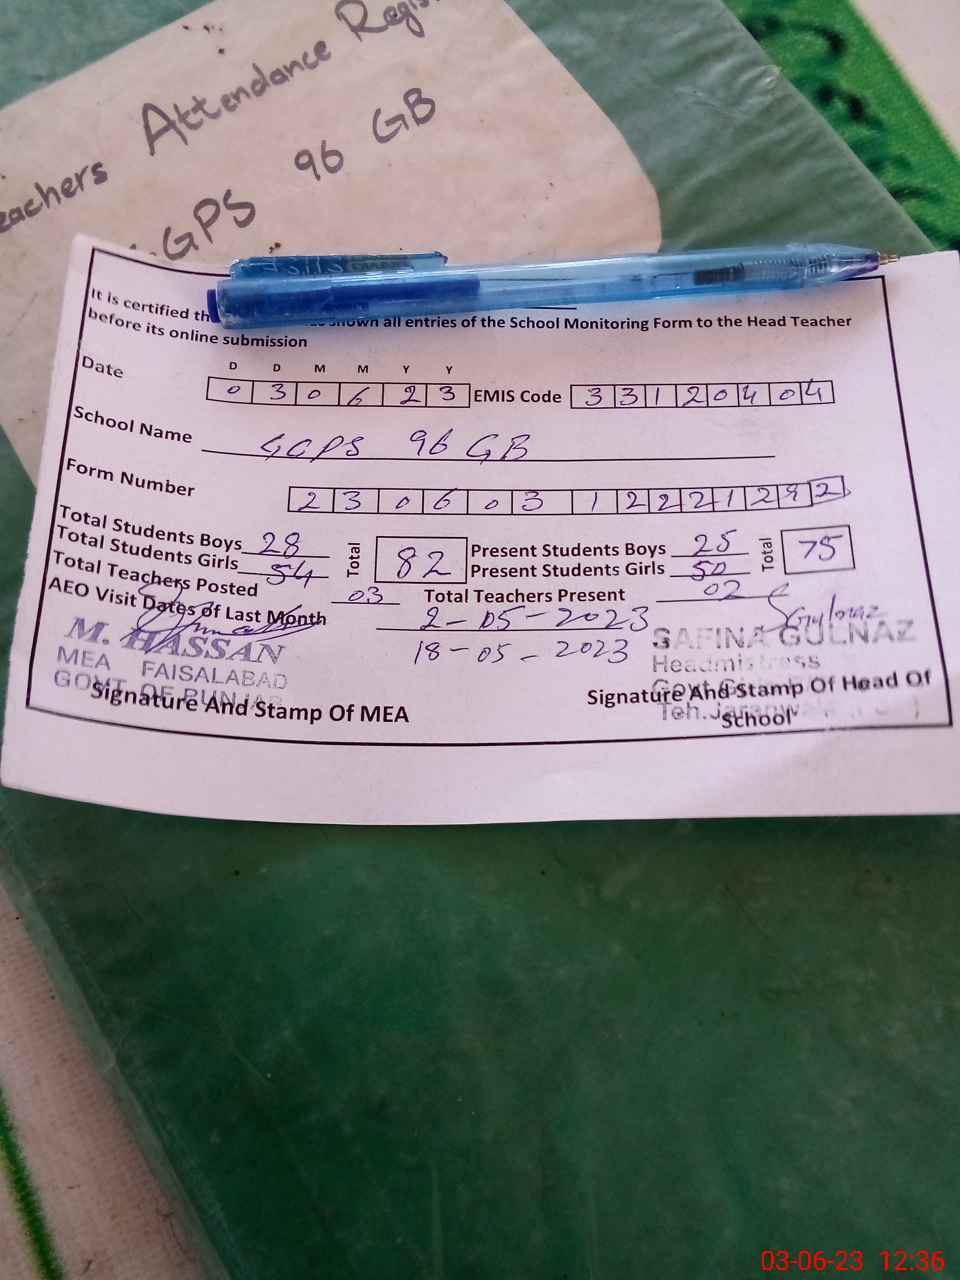 Teachers Attendance Regis
GGPS 96 GB
It is certified th shown all entries of the School Monitoring Form to the Head Teacher
before its online submission
D D M M Y Y
Date 0 3 0 6 2 3 EMIS Code 3 3 1 2 0 4 0 4
School Name GGPS 96 GB
Form Number 2 3 0 6 0 3 1 2 2 2 1 2 9 2
Total Students Boys 28 Total 82 Present Students Boys 25 Total 75
Total Students Girls 54 Present Students Girls 50
Total Teachers Posted 03 Total Teachers Present 02
AEO Visit Dates of Last Month 2-05-2023
18-05-2023
M. HASSAN
MEA FAISALABAD
GOVT. OF PUNJAB
Signature And Stamp Of MEA
SAFINA GULNAZ
Headmistress
Govt
Teh. Jaranwala
Signature And Stamp Of Head Of
School
03-06-23 12:36